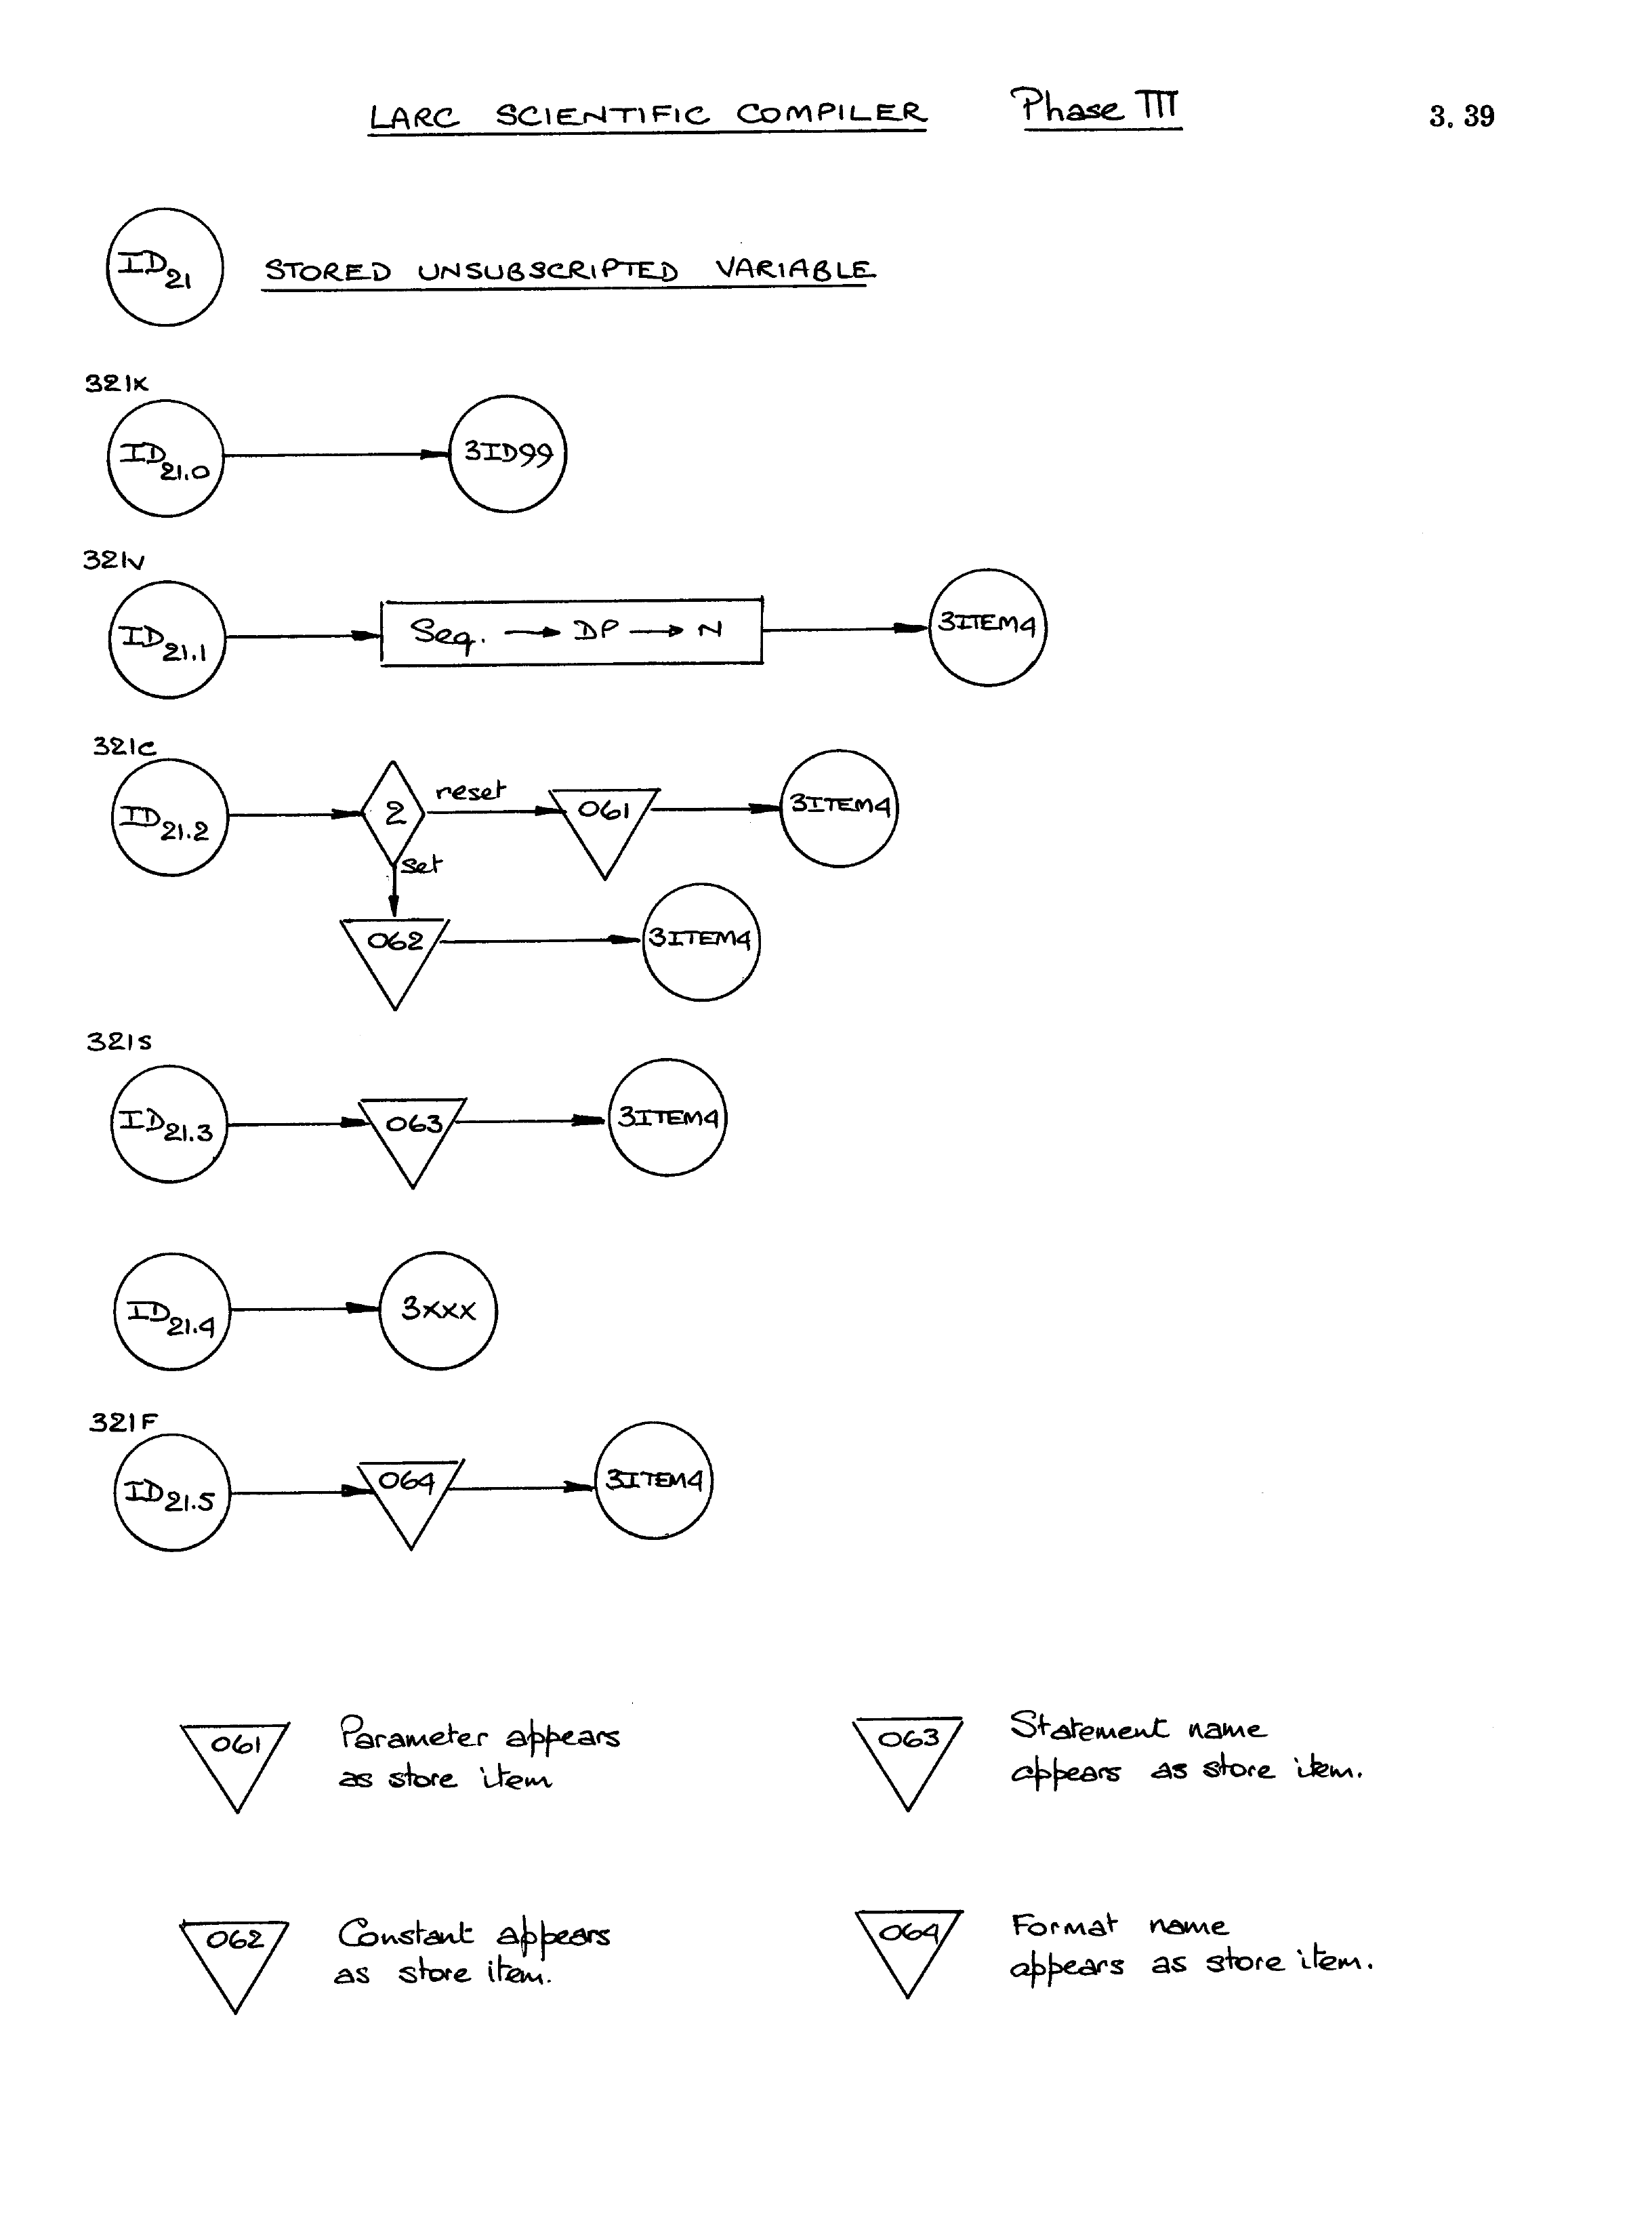 LARC SCIENTIFIC COMPILER Phase III 3.39
ID21 STORED UNSUBSCRIPTED VARIABLE
321x
ID21.0 3ID99
321v
ID21.1 Seq. → DP → N 3ITEM4
321c
ID21.2 2 reset 061 3ITEM4
set
062 3ITEM4
321s
ID21.3 063 3ITEM4
ID21.4 3xxx
321F
ID21.5 064 3ITEM4
061 Parameter appears
as store item
063 Statement name
appears as store item.
062 Constant appears
as store item.
064 Format name
appears as store item.